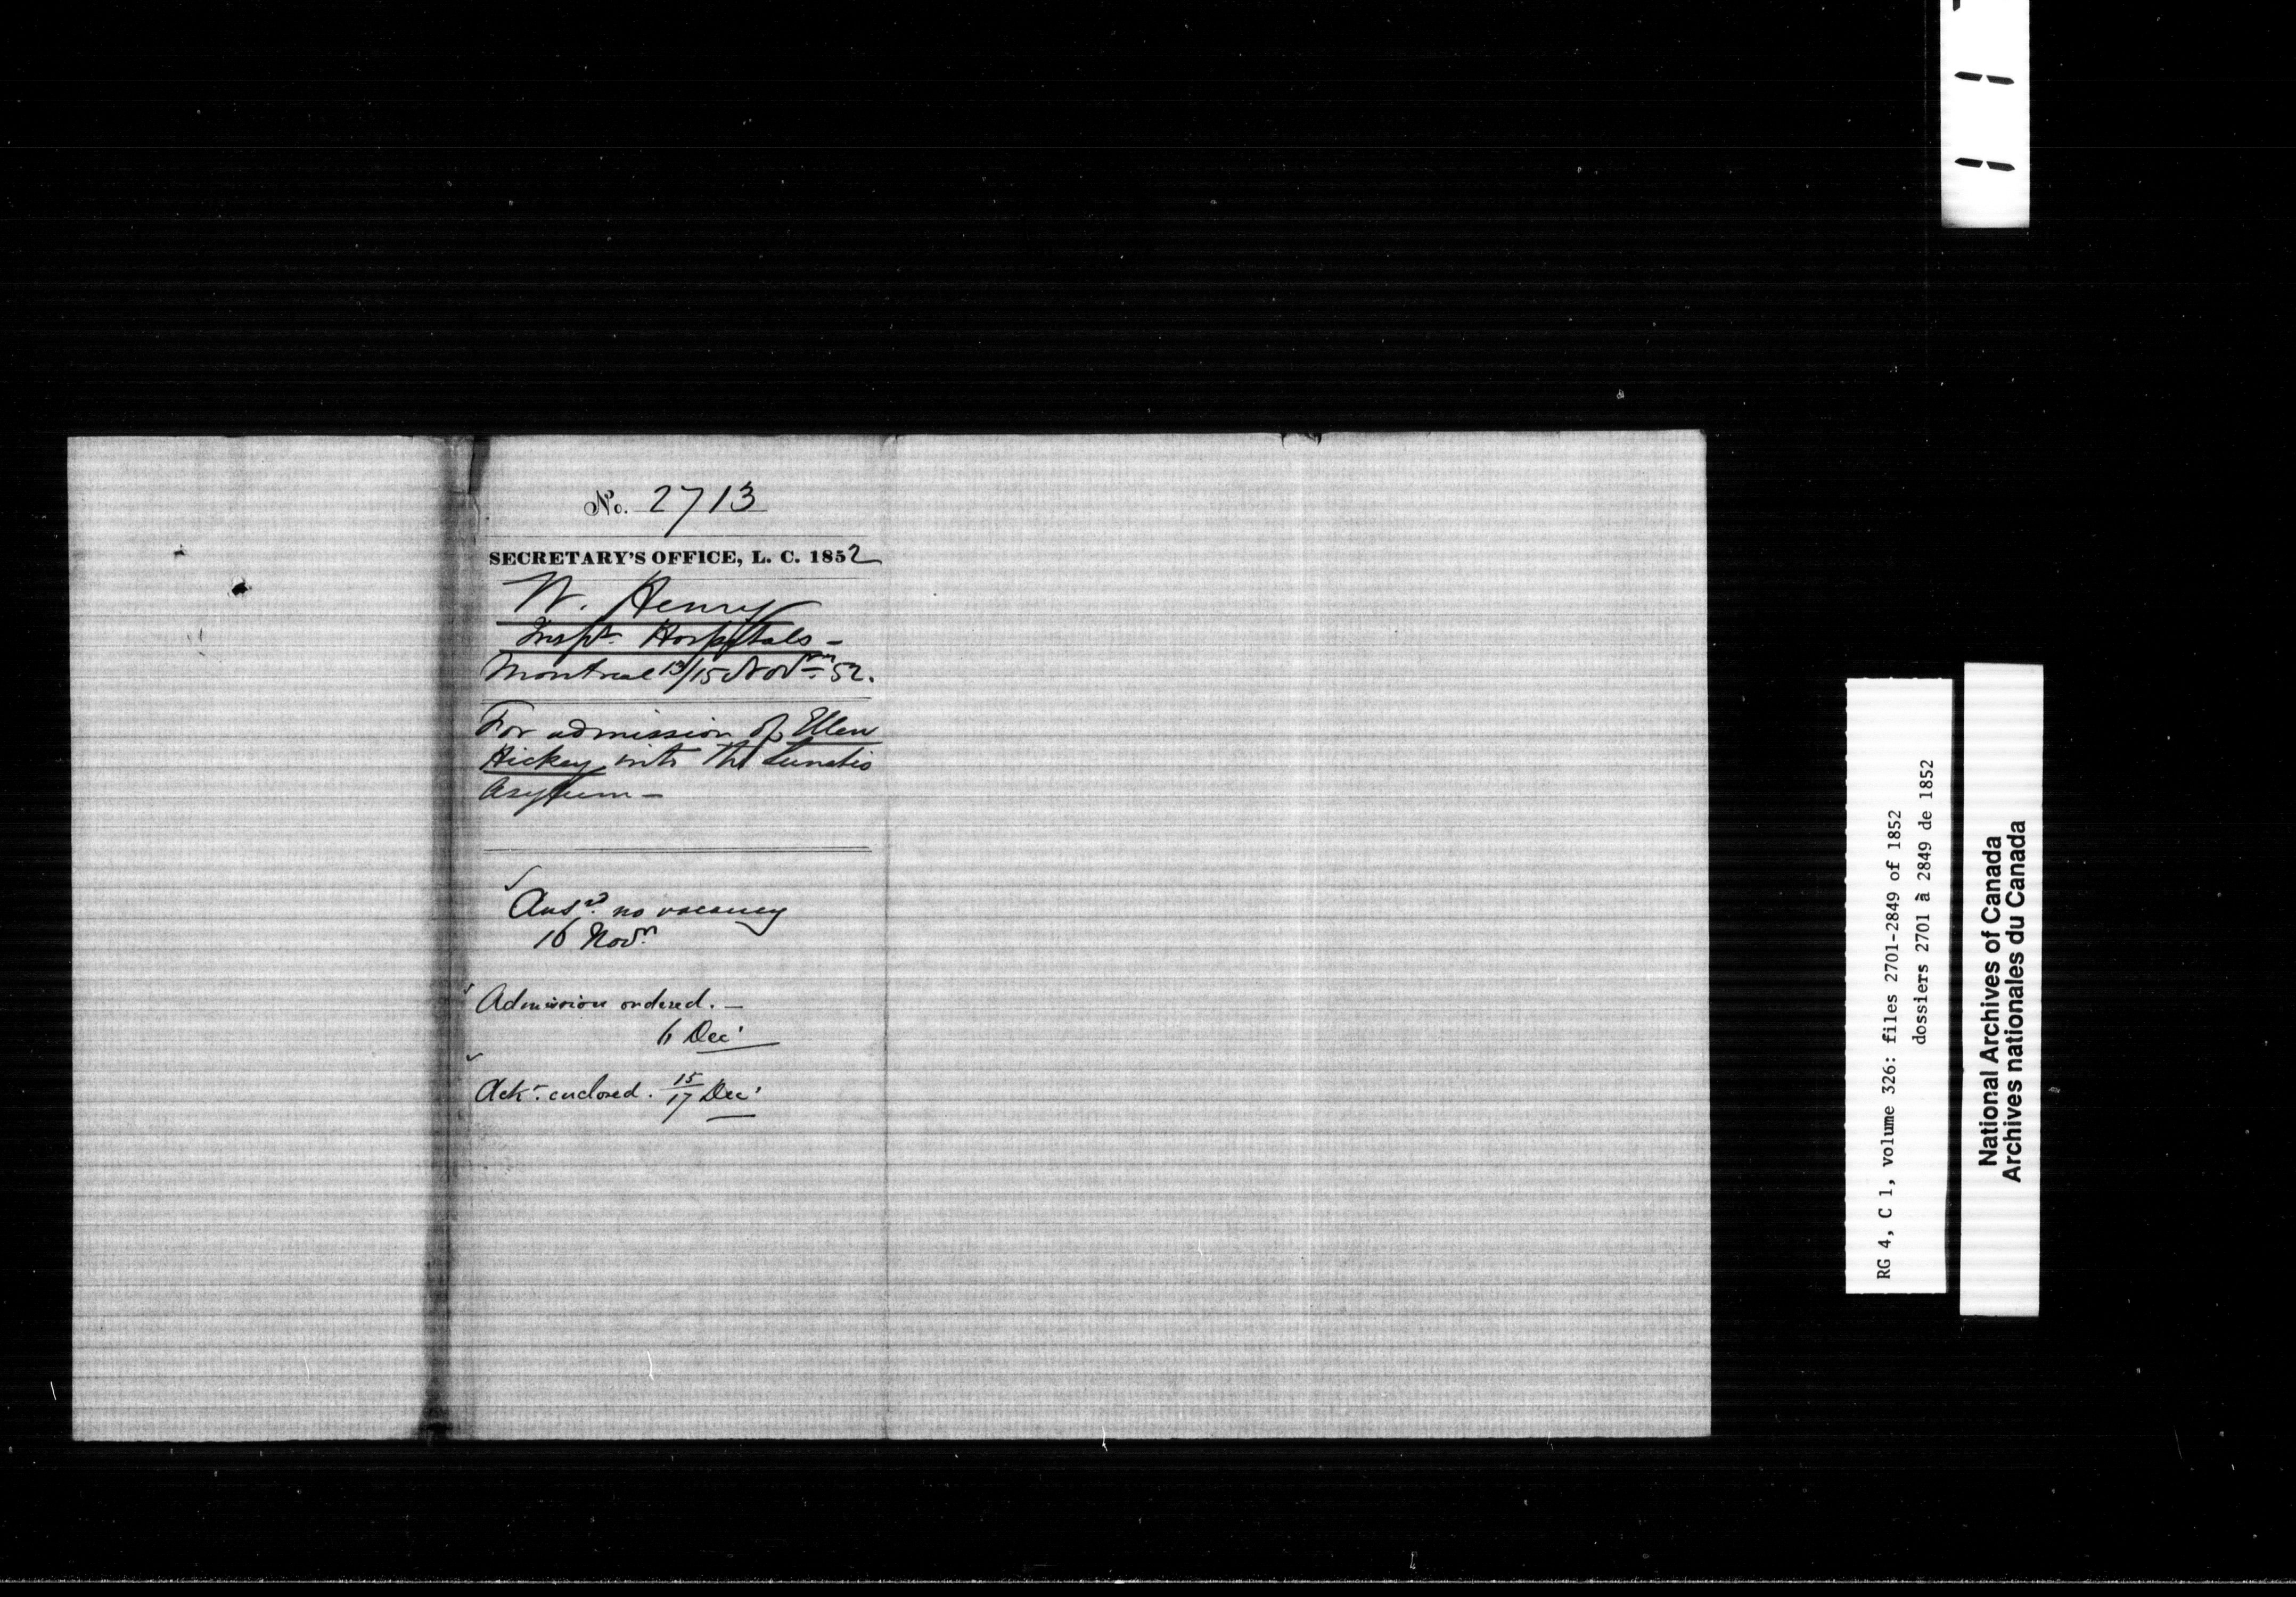 No. 2713
SECRETARY'S OFFICE, L. C. 1852
W. Henry
Inspr. Hospitals -
Montreal 13/15 Novr. 52.
For admission of Ellen
Hickey into the Lunatic
Asylum -
Ansd. no vacancy
16 Novr.
Admission ordered. -
6 Decr
Ackt. enclosed. 15/17 Decr
RG 4, C 1, volume 326: files 2701-2849 of 1852
dossiers 2701 à 2849 de 1852
National Archives of Canada
Archives nationales du Canada